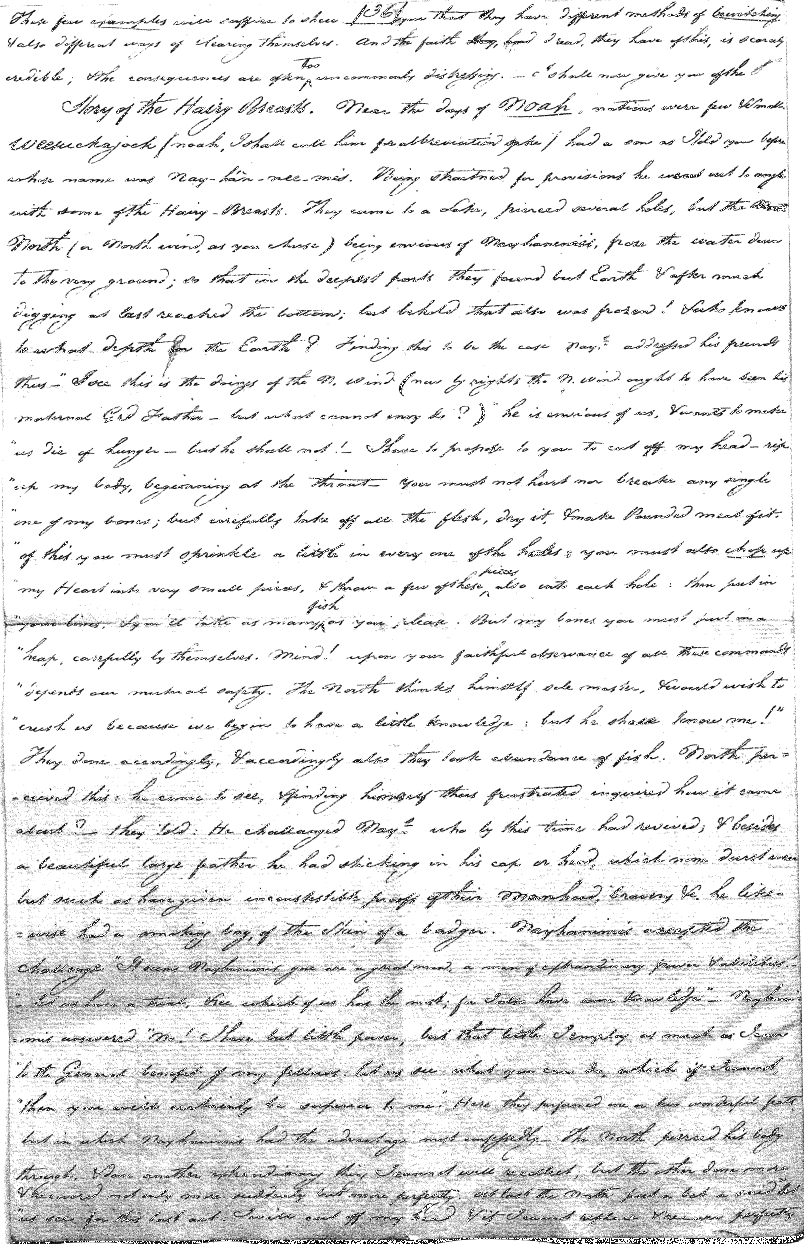 [36]
These few examples will suffice to shew you that they have different methods of bewitching
& also different ways of clearing themselves. And the faith they, had dread, they have of this, is scarcely
credible; & the consequences are often too uncommonly distressing. — I shall now give you of the
Story of the Hairy Breasts. Near the days of Noah, nations were few & small
Weesuckajock (noah, I shall call him for abbreviation sake) had a son as I told you before
whose name was Nay-hân-nee-mis. Being straitned for provisions he went out to angle
with some of the Hairy-Breasts. They came to a Lake, pierced several holes, but the
North (or North wind, as you chuse) being envious of Nayhanimis, froze the water down
to the very ground; so that in the deepest parts they found but Earth & after much
digging at last reached the bottom; but behold that also was frozen! & who knows
to what depth in the Earth? Finding this to be the case Nay:s addressed his friends
thus — "I see this is the doings of the N. Wind (now by rights the N. Wind ought to have been his
maternal Grd Father — but what cannot envy do?) "he is envious of us, & wants to make
"us die of hunger — but he shall not! — I have to propose to you to cut off my head — rip
"up my body, beginning at the throat — You must not hurt nor breake any single
"one of my bones; but carefully take off all the flesh, dry it, & make Pounded meat of it.
"of this you must sprinkle a little in every one of the holes: you must also chop up
"my Heart into very small pieces, & throw a few of these pieces also into each hole: then put in
"your lines, & you'll take as many fish as you please. But my bones you must put in a
"heap, carefully by themselves. Mind! upon your faithful observance of all these commands
"depends our mutual safety. The North thinks himself sole master, & would wish to
"crush us because we begin to have a little knowledge: but he shall know me!"
They done accordingly, & accordingly also they took abundance of fish. North per=
=ceived this: he came to see, & finding himself thus frustrated inquired how it came
about? — they told: He challanged Nay:s who by this time had revived; & besides
a beautiful large father he had sticking in his cap or head, which none durst wear
but such as have given incontestible proofs of their Manhood, bravery &c, he like=
=wise had a smoking bag, of the Skin of a badger. Nayhanimis accepted the
challenge "I hear Nayhanimis you are a great man, a man of extraordinary power &
"Let us have a trial, & see which of us has the most; for I also have some Knowledge" — Nayhani=
=mis answered "No! I have but little power, but that little I employ as much as I can
"to the General benefit of my fellows: let us see what you can do, which if I cannot
"then you will certainly be superior to me." Here they performed one or two wonderful feats
but in which Nayhanimis had the advantage most The North pierced his body
through, & done another extraordinary thing I cannot well recollect, but the other done more
& recovered not only more suddenly but more perfectly, at last the North "Let
"us see for this last act. I will cut off my head & if I cannot replace & recover perfectly